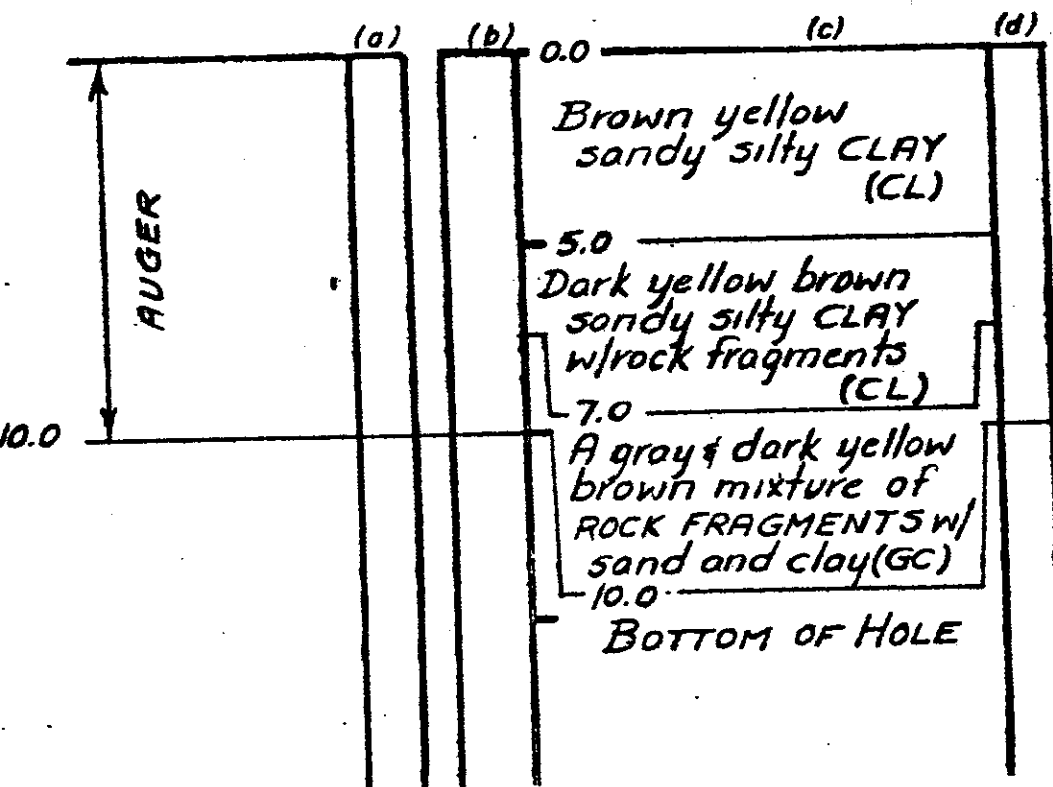 (a) (b) (c) (d)
0.0
Brown yellow
sandy silty CLAY
(CL)
AUGER
5.0
Dark yellow brown
sandy silty CLAY
w/rock fragments
(CL)
7.0
10.0
A gray & dark yellow
brown mixture of
ROCK FRAGMENTS w/
sand and clay (GC)
10.0
BOTTOM OF HOLE